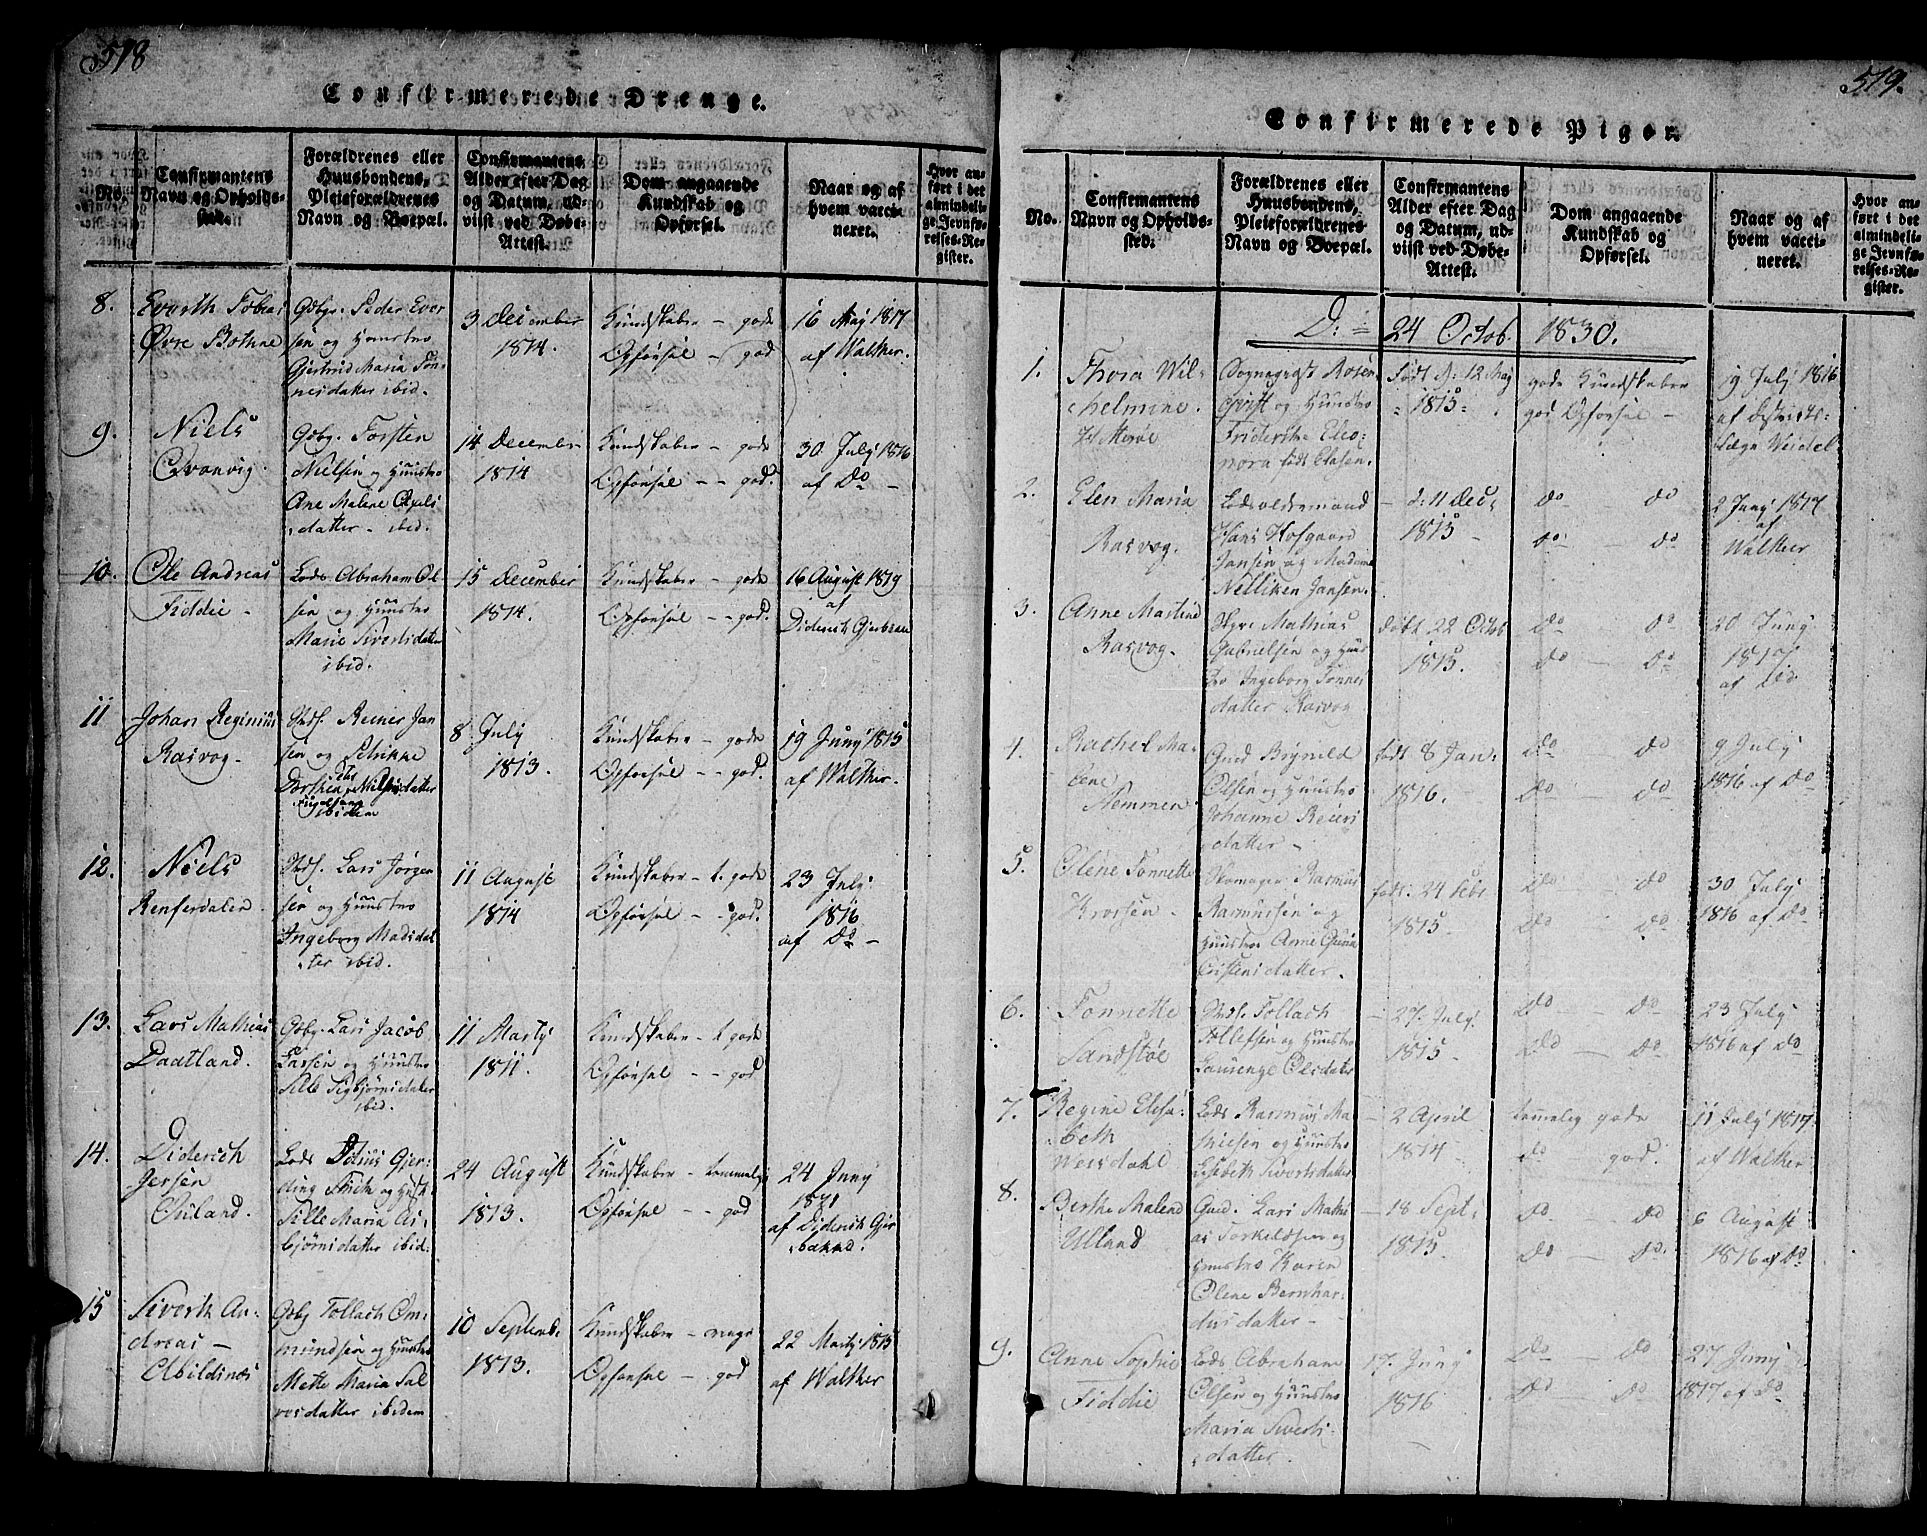 518
Confirmerede Drenge.
No.
Confirmantens
Navn og Opholds-
sted.
Forældrenes eller
Huusbondens,
Pleieforældrenes
Navn og Boepæl.
Confirmantens
Alder efter Dag
og Datum, ud-
viist ved Døbe-
Attest.
Dom angaaende
Kundskab og
Opførsel.
Naar og af
hvem vacci-
neret.
Hvor an-
ført i det
almindeli-
ge Jevnfø-
relses-Re-
gister.
8.
Evorth Tobias
Øvre Bothne
Gdbgr. Peder Ever
sen og Huustro
Giertrud Maria Ton-
nesdatter ibid.
3 December
1814.
Kundskaber - gode
Opførsel - god
16 Maj 1817
af Walther.
9.
Niels
Qvanvig.
Gdbgr. Torsten
Nielsen og Huustro
Ane Malene Axels
datter - ibid.
14 December
1814
Kundskaber - gode
Opførsel - - god.
30 July 1816
af Do -
10.
Ole Andreas
Fiddie -
Lods Abraham Ol
sen og Huustro
Marie Sivertsdatter
ibid.
15 December
1814.
Kundskaber - gode
Opførsel - - god.
16 August 1819
af
Diderich
11
Johan Reginius
Rasvog.
Reiner Jan
sen og Petrikke
ibidem
8 July
1813.
Kundskaber - gode
Opførsel - - god.
19 Juny 1815
af Walther.
12.
Niels
Renferdalen.
Lars Jørgen
sen og Huustro
Ingeborg Madsdat
ter ibid.
11 August
1814
Kundskaber - t. gode
Opførsel - - god.
23 July
1816
af Do -
13.
Lars Mathias
Daatland.
Gdbgr. Lars Jacob
Larsen og Huustro
Sille Sigbjørnsdatter
ibid.
11 Martj
1811.
Kundskaber - t. gode
Opførsel - - god
14.
Diderich
Jersen
Øuland.
Lods
Sille Maria As-
bjørnsdatter ibid:
24 August
1813.
Kundskaber - temmelig
Opførsel - - god
24 Juny
af Diderich Gjer
15
Sivert An-
dreas -
Abildsnes
Gdbg Tollach Om-
mundsen og Huustro
Mette Maria Sal
vesdatter ibidem
10 Septemb:
1813.
Kundskaber - mage
Opførsel - god
22 Martj 1815
af Walther
519.
Confirmerede Piger.
No.
Confirmantens
Navn og Opholds-
sted.
Forældrenes eller
Huusbondens,
Pleieforældrenes
Navn og Boepæl.
Confirmantens
Alder efter Dag
og Datum, ud-
viist ved Døbe-
Attest.
Dom angaaende
Kundskab og
Opførsel.
Naar og af
hvem vacci-
neret.
Hvor an-
ført i det
almindeli-
ge Jevnfø-
relses-Re-
gister.
D: 24 Octob. 1830.
1.
Thora Wil-
helmine.
Sognepræst Rosen
qvist og Huustro
Friderike Eleo-
nora født Clasen.
Født d: 12 Maj
1815.
gode Kundskaber
god Opførsel -
19 July 1816
af Districts-
Læge Weidel
2.
Elen Maria
Rasvog.
Lodsoldermand
Hans Hofgaard
Jansen og Madame
Nelliken Jansen.
- d: 11 Dec:
1815 -
do - do
do - do
2 Junj 1817
af
Walther
3.
Anne Martine
Rasvog.
Mathias
Gabrielsen og Huus
tro Ingeborg Tønnes
datter Rasvog
døbt 22 Octob
1815.
do - do
do - do
20 Juny
1817
af Do
4.
Rachel Ma-
lene
Nemmen.
Olsen og Huustro
Johanne Reiers
datter -
født 8 Jan:
1816.
do - do
do - do
9 July
1816 af do
5.
Olene Tonnette
Skomager Rasmus
Rasmussen og
Huustro Anne
datter.
født: 24 Febr
1815.
do - do
do - do
30 July
1816 af do
6.
Tonnette
Sandstøe
Tollach
Tollefsen og Huustro
Laurenze Olsdatter
- 27. July
1815 -
do - do
do - do
23 July
1816 af do
7.
Regine Elisa-
beth
Weisdahl
Lods Rasmus Ma
thiesen og Huustro
Lisebeth Sivertsdatter
- 2 April
1814 -
temmelig gode
do - god.
11 July 1817.
af Walther
8.
Berthe Malene
Ulland
Lars Mathi
as Torkildsen og
Huustro Karen
Olene Bernhar-
dusdatter -
- 18 Sept:
1815.
do - do
do - do.
6 August
1816 af do
9.
Anne Sophie
Fiddie
Lods Abraham
Olsen og Huustro
Maria Siverts-
datter.
17. Juny
1816
do - do
do - do
27 Juny
1817 af do